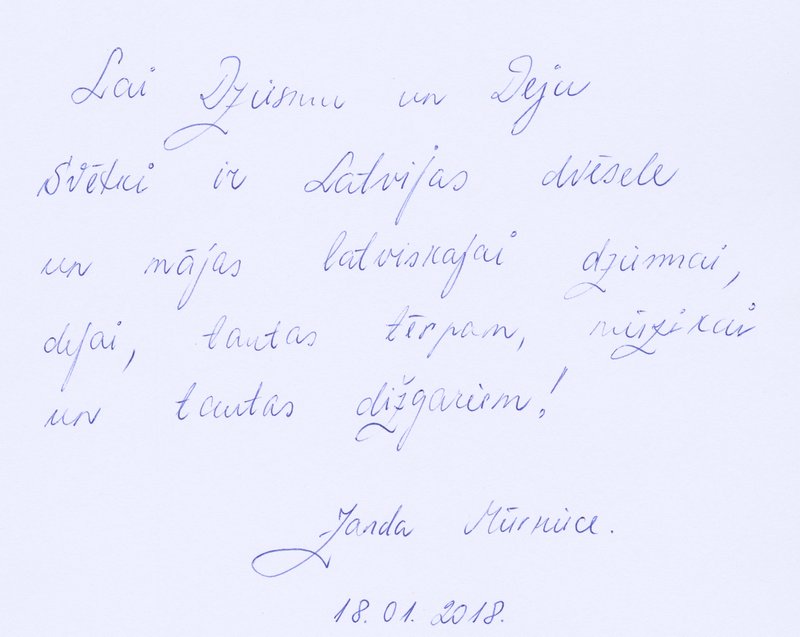 Lai Dziesmu un Deju
Svētki ir Latvijas dvēsele
un mājas latviskajai dziesmai,
dejai, tautas tērpam, mūzikai
un tautas dižgariem!
Janda Mūrniece.
18.01.2018.